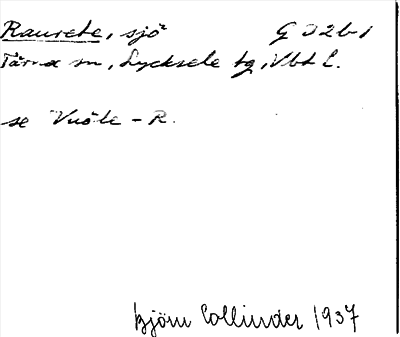 Raurete, sjö G 32b1
Tärna sn, Lycksele tg, Vbt l.
se Vuöle - R.
Björn Collinder 1937